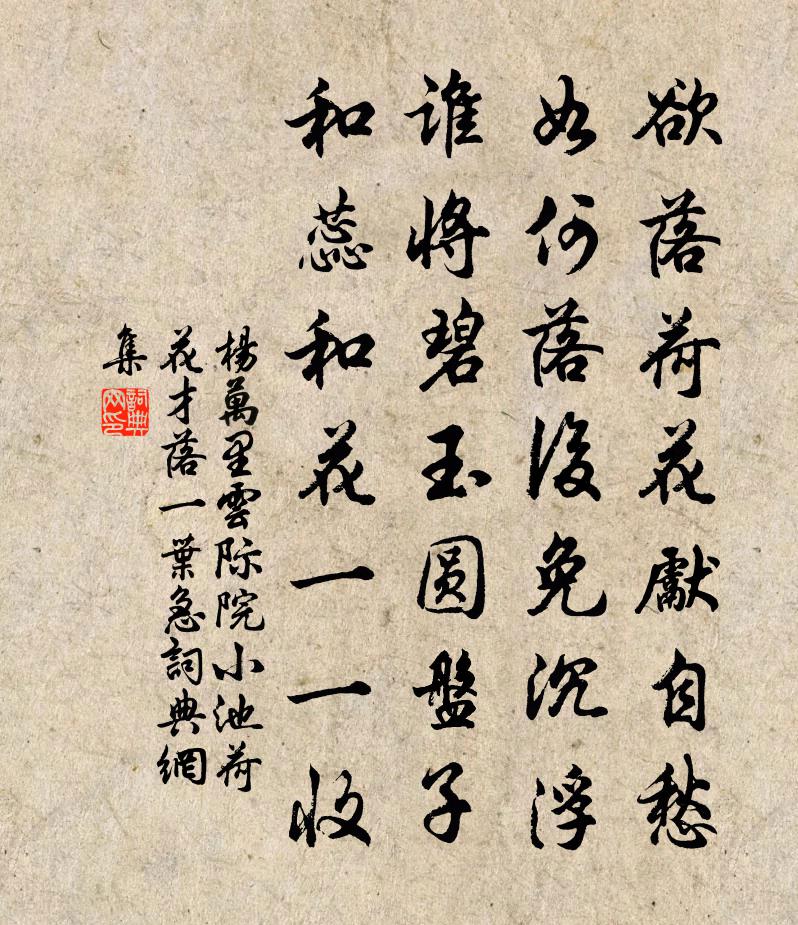 欲落荷花獻自愁
如何落後免沉浮
谁將碧玉圆盤子
和蕊和花一一收
楊萬里雲际院小池荷
花才落一葉急詞典網
集
詞典網印